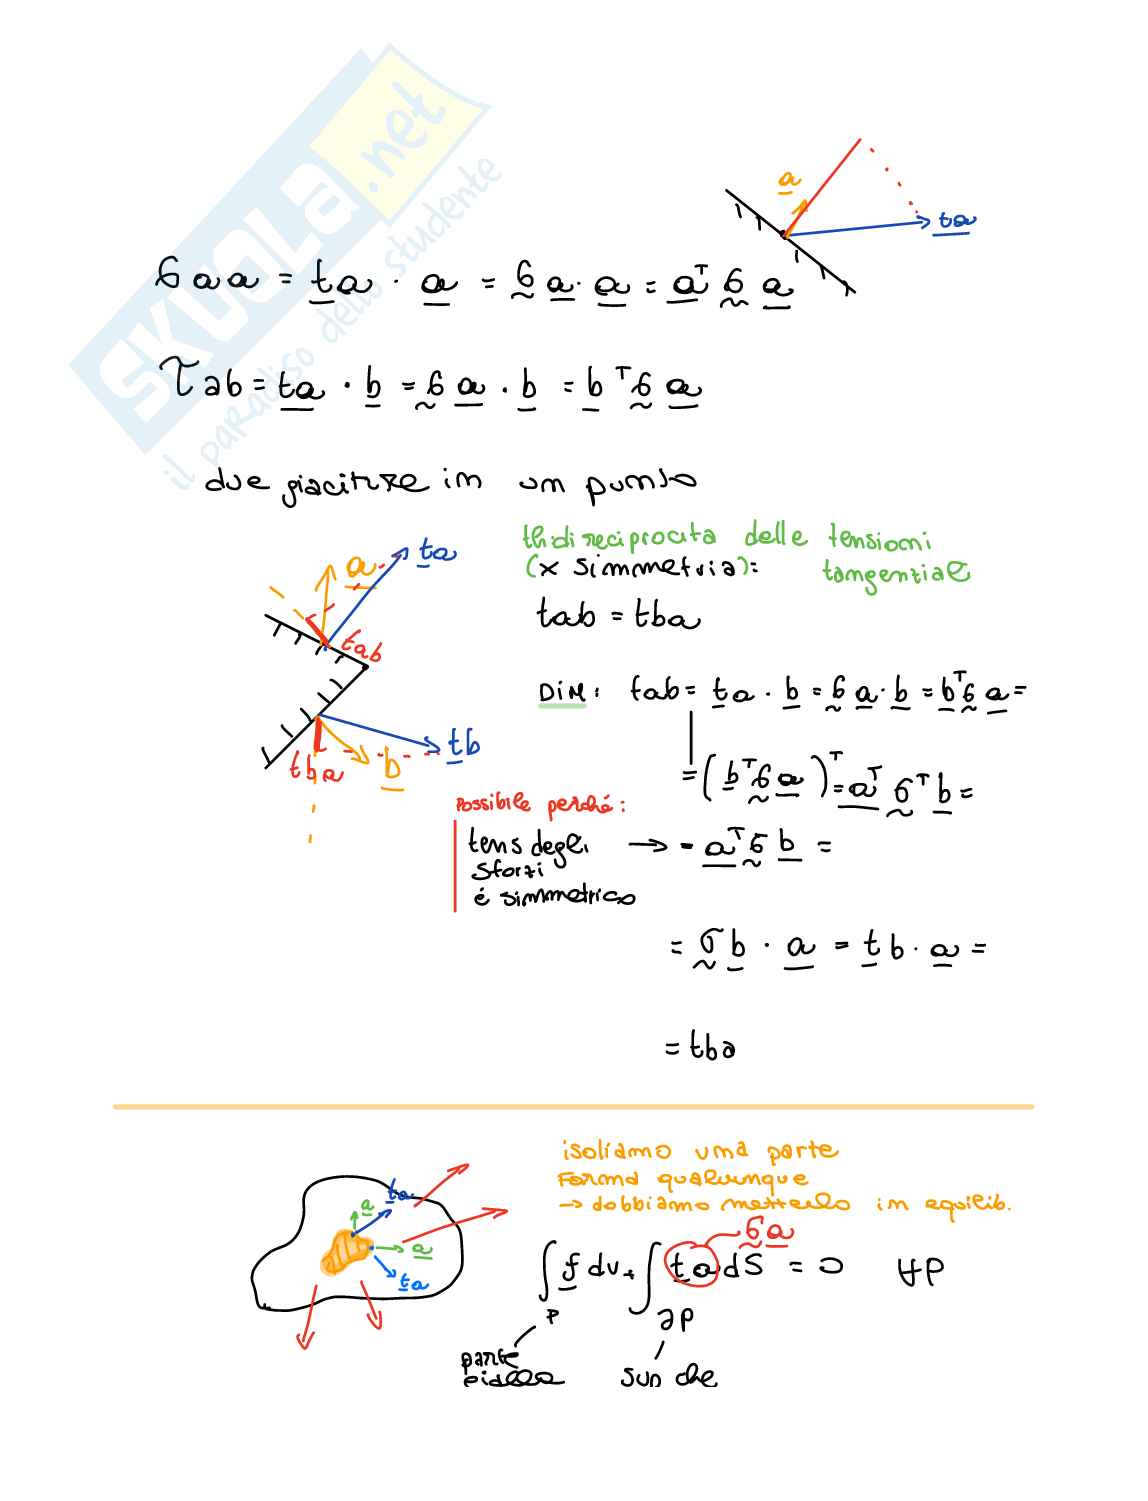 SKUOLA.net
il paradiso dello studente
a
ta
σaa = ta · a = σ a · a = aᵀ σ a
τab = ta · b = σ a · b = bᵀ σ a
due giaciture in un punto
a ta
tab
tb
tba b
th. di reciprocita delle tensioni
(x simmetria): tangenziali
tab = tba
DIM: tab = ta · b = σ a · b = bᵀ σ a =
= (bᵀ σ a)ᵀ = aᵀ σᵀ b =
Possibile perché:
tens degli → = aᵀ σ b =
sforzi
é simmetrico
= σ b · a = tb · a =
= tba
isoliamo una parte
Forma qualunque
→ dobbiamo metterlo in equilib.
a ta
a
ta
σ a
∫ f dv + ∫ ta dS = 0 ∀P
P ∂P
parte
sup che